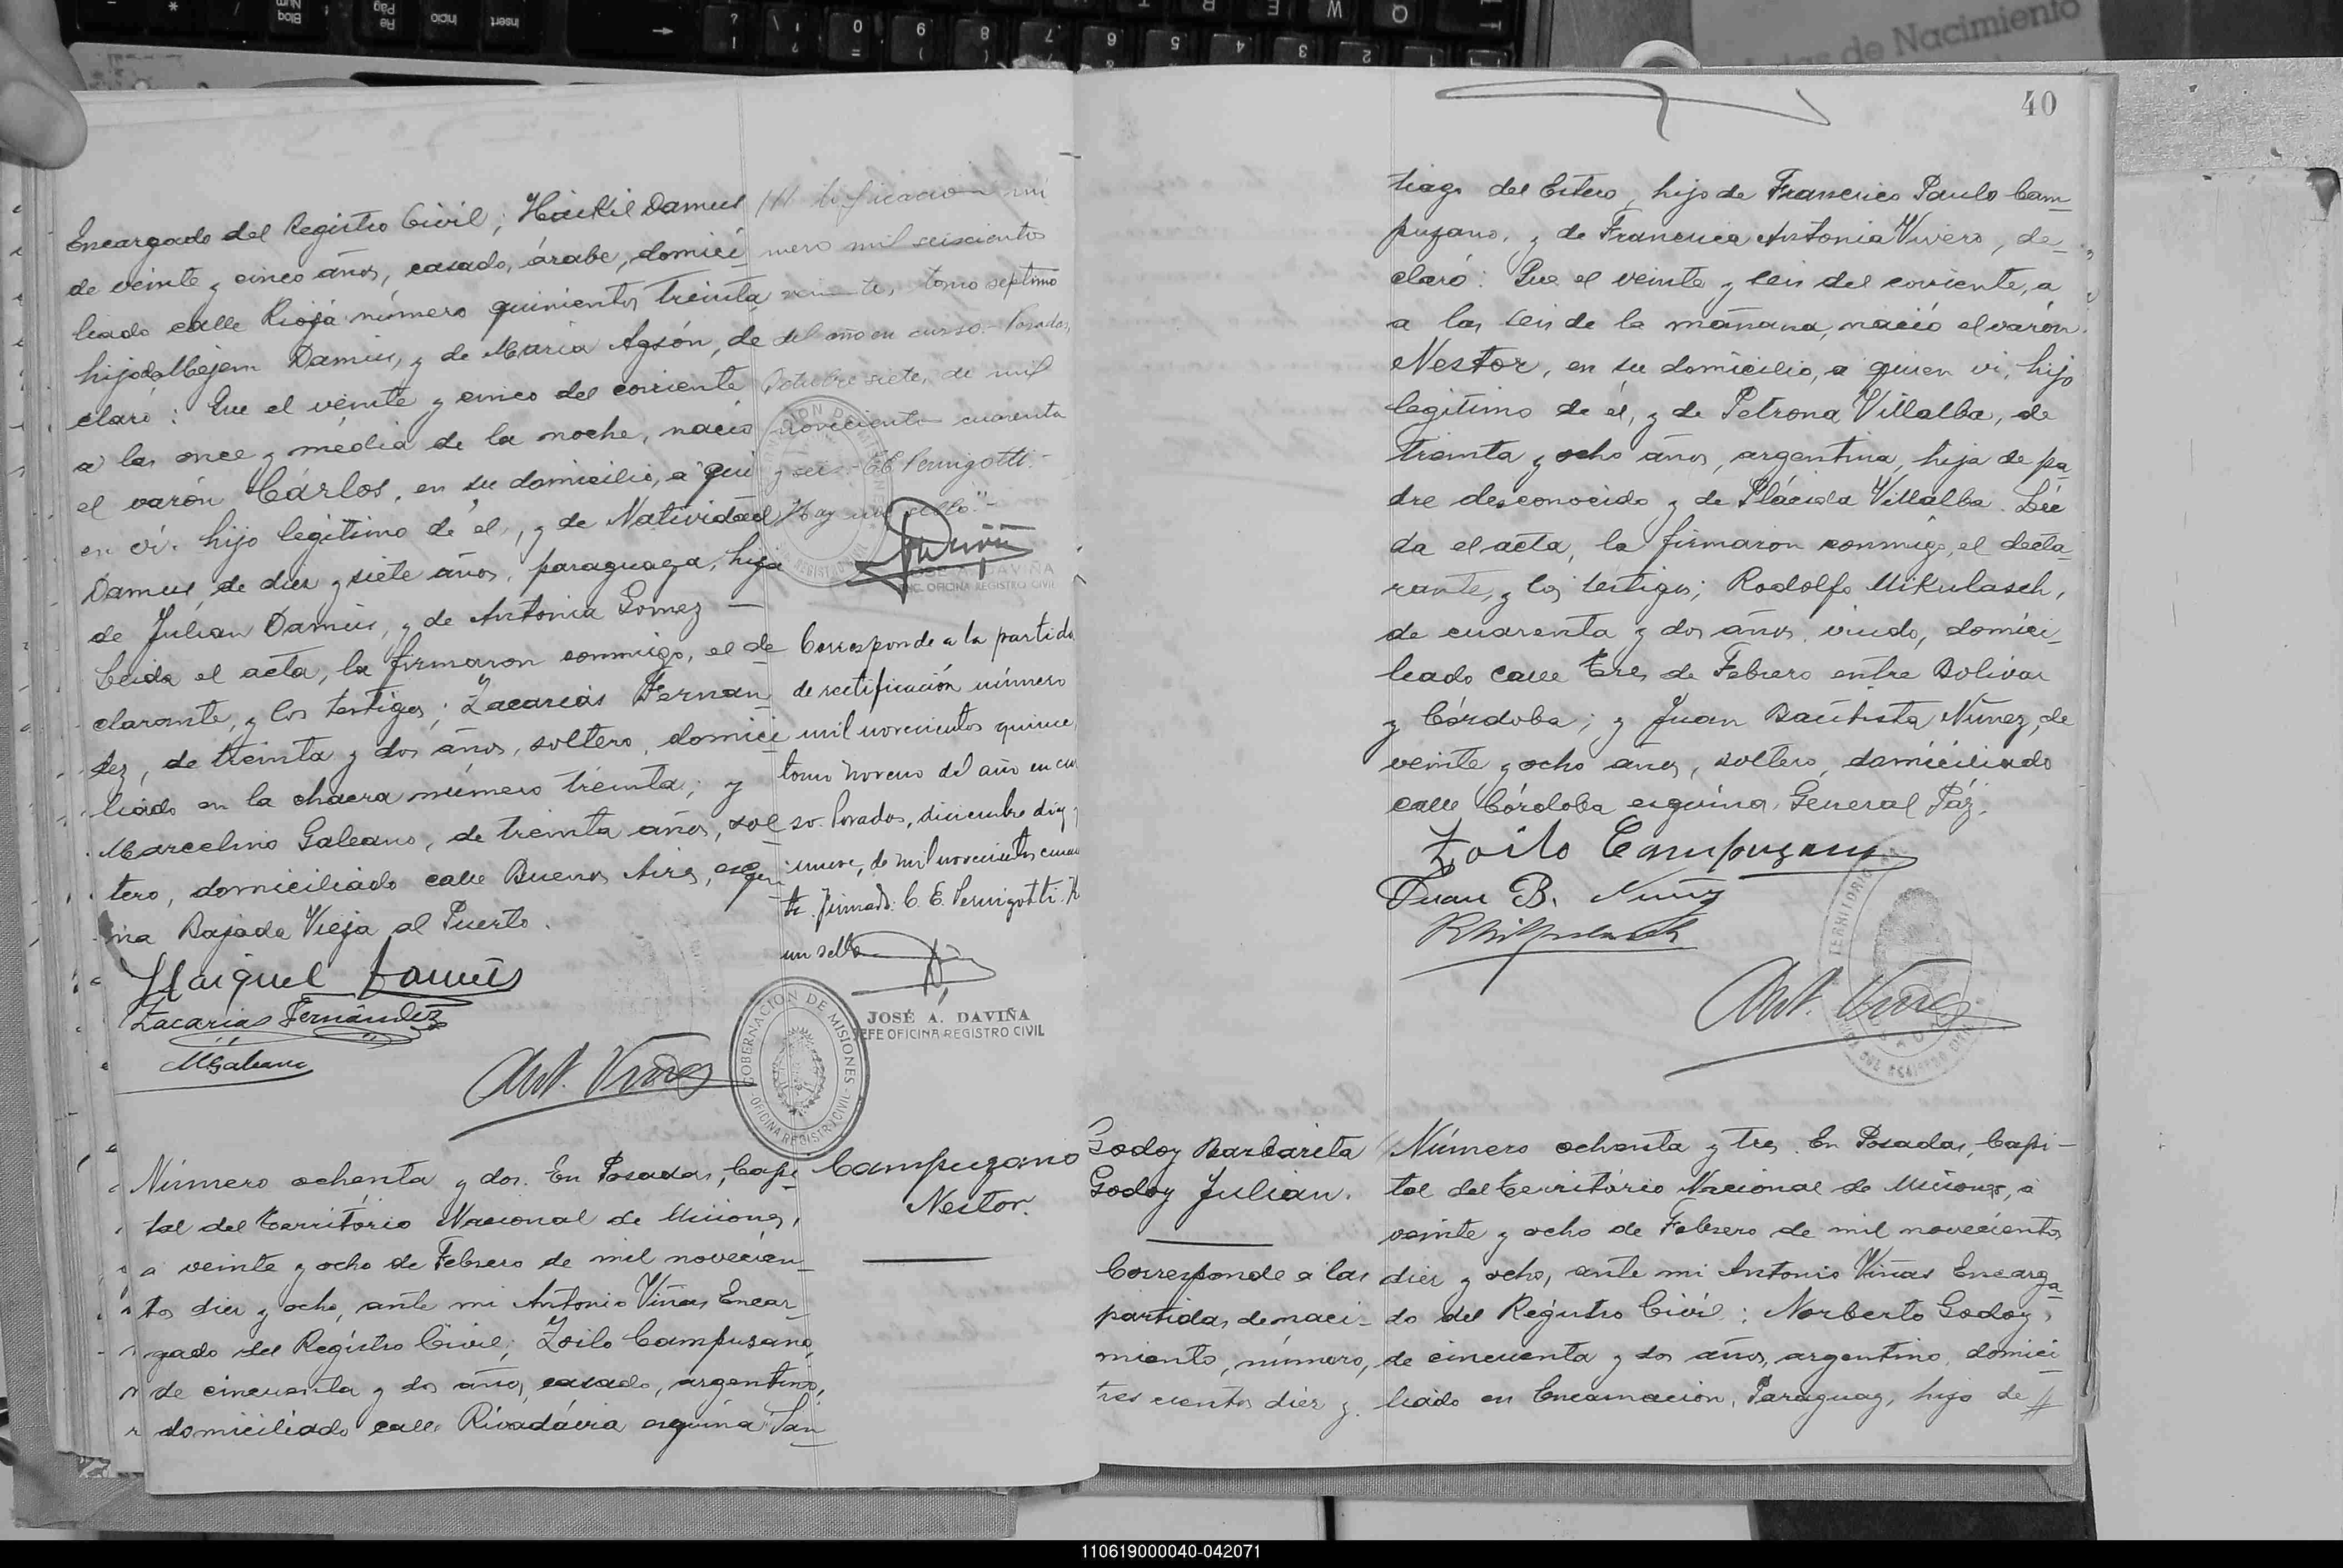 Encargado del Registro Civil; Haikil Damus
de veinte y cinco años, casado, árabe, domici
liado calle Rioja número quinientos treinta
hijo de Mejem Damus, y de María Agsón, de
claró: Que el veinte y cinco del corriente
a las once y media de la noche, nació
el varón Cárlos, en su domicilio, a qui
en ví. hijo legítimo de él, y de Natividad
Damus, de diez y siete años, paraguaya, hija
de Julian Damus, y de Antonia Gomez —
Leida el acta, la firmaron conmigo, el de
clarante, y los testigos; Zacarías Fernan
dez, de treinta y dos años, soltero, domici
liado en la chacra número treinta; y
Marcelino Galeano, de treinta años, sol
tero, domiciliado calle Buenos Aires, esqui
na Bajada Vieja al Puerto.
Haiquel Damus
Zacarias Fernández
MGaleano
Ant. Viñas
tificación nú
mero mil seiscientos
tomo septimo
del año en curso.- Posadas,
Octubre siete, de mil
novecientos cuarenta
y seis - C.E. Pernigotti.-
Hay un sello".-
JOSÉ A. DAVIÑA
ENC. OFICINA REGISTRO CIVIL
Corresponde a la partida
de rectificación número
mil novecientos quince,
tomo noveno del año en cur
so. Posadas, diciembre diez y
nueve, de mil novecientos
Firmado: C. E. Pernigotti. H
un sello
JOSÉ A. DAVIÑA
JEFE OFICINA REGISTRO CIVIL
GOBERNACION DE MISIONES
OFICINA REGISTRO CIVIL
Campuzano
Nestor.
Número ochenta y dos. En Posadas, Capi
tal del Território Nacional de Misiones,
a veinte y ocho de Febrero de mil novecien
tos diez y ocho, ante mi Antonio Viñas Encar
gado del Registro Civil; Zoilo Campusano,
de cincuenta y dos años, casado, argentino,
domiciliado calle Rivadávia esquina San
40
tiago del Estero, hijo de Francisco Paulo Cam
puzano, y de Francisca Antonia Vivero, de
claró: Que el veinte y seis del corriente, a
a las seis de la mañana, nació el varón
Nestor, en su domicilio, a quien vi, hijo
legítimo de él, y de Petrona Villalba, de
treinta y ocho años, argentina, hija de pa
dre desconocido y de Plácida Villalba. Leí
da el acta, la firmaron conmigo, el decla
rante, y los testigos; Rodolfo Mikulasch,
de cuarenta y dos años, viudo, domici
liado calle Tres de Febrero entre Bolivar
y Córdoba; y Juan Bautista Núnez, de
veinte y ocho años, soltero, domiciliado
calle Córdoba esquina General Páz.
Zoilo Campuzano
Juan B. Nuñez
RMikulasch
Ant. Viñas
Godoy Barbarita
Godoy Julián.
Corresponde a las
partidas de naci-
miento, número,
tres cientos diez y
Número ochenta y tres. En Posadas, Capi-
tal del Território Nacional de Misiones, a
veinte y ocho de Febrero de mil novecientos
diez y ocho, ante mi Antonio Viñas Encarga
do del Registro Civil: Norberto Godoy,
de cincuenta y dos años, argentino, domici
liado en Encarnación, Paraguay, hijo de #
110619000040-042071